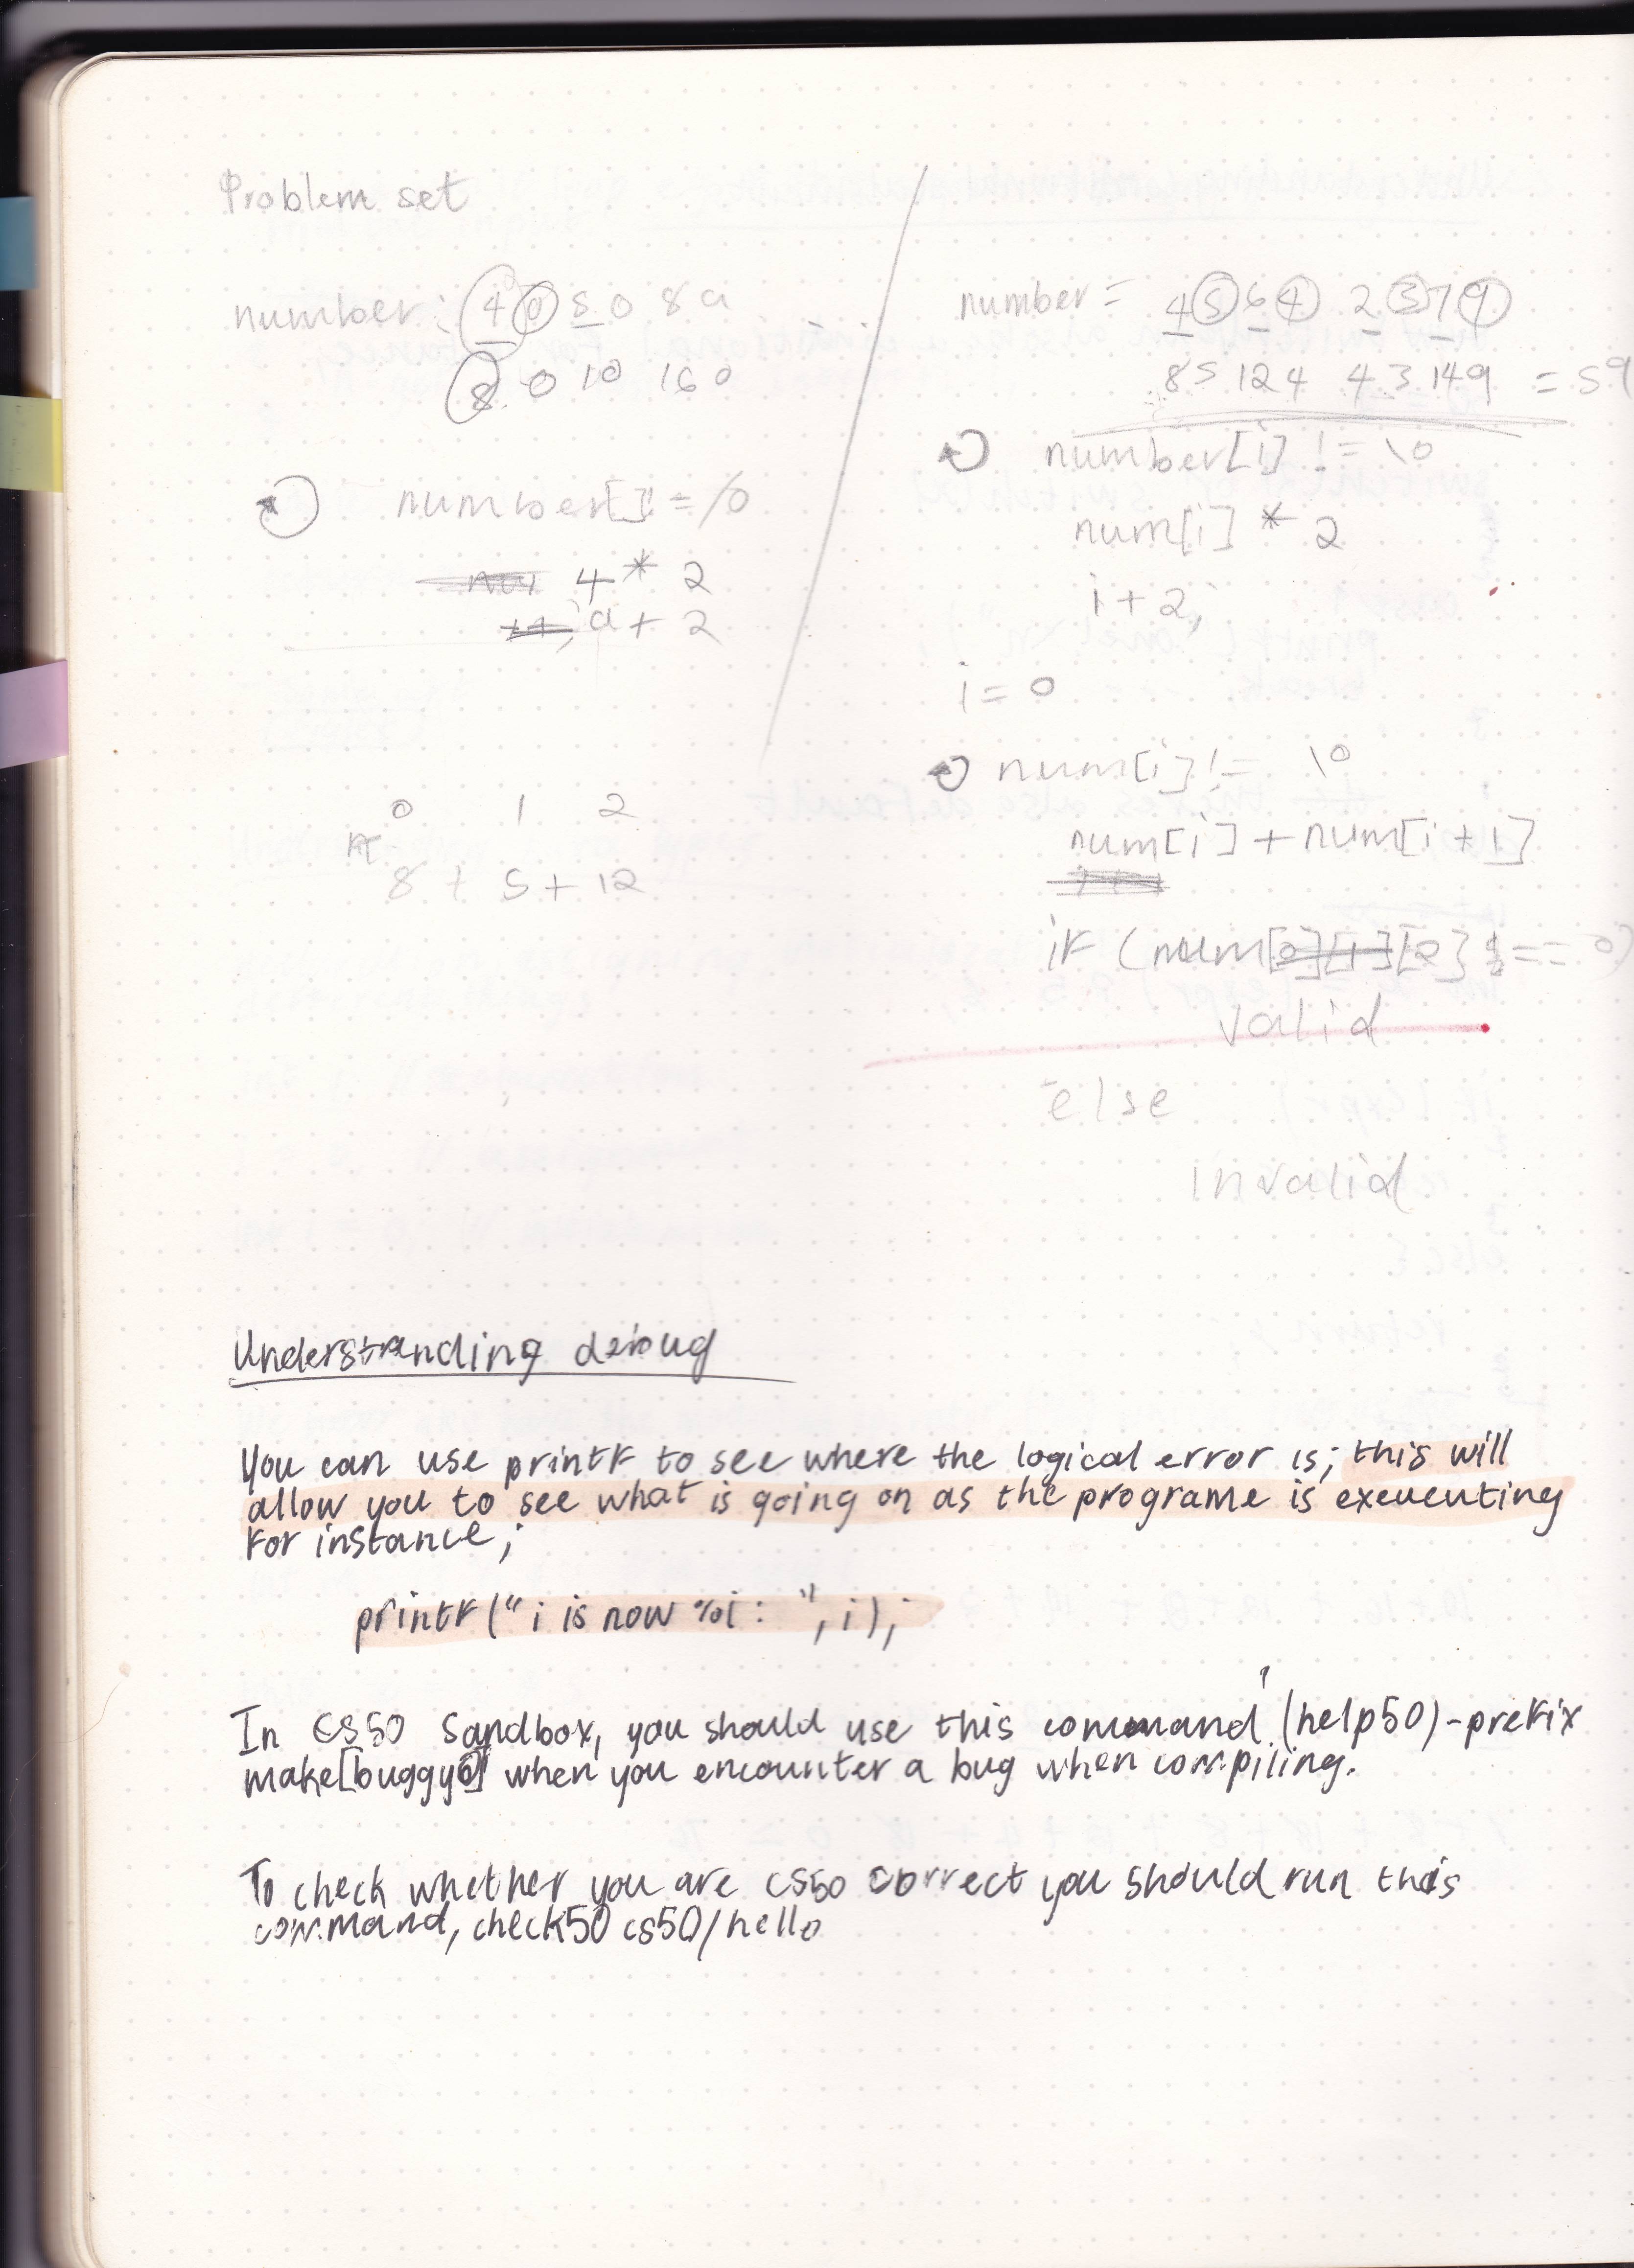 Problem set
number: 4 0 5 0 8 a
8 0 10 16 0
number[i] = /0
4 * 2
a + 2
0 1 2
8 + 5 + 12
number = 4 5 6 4 2 3 7 9
8 5 12 4 4 3 14 9 = 59
number[i] != \0
num[i] * 2
i + 2;
i = 0
num[i] != \0
num[i] + num[i + 1]
if (num[0][1][2] == 0)
valid
else
invalid
Understanding debug
You can use printf to see where the logical error is; this will
allow you to see what is going on as the programe is exeucuting
for instance;
printf("i is now %i : ", i);
In CS50 Sandbox, you should use this command (help50)-prefix
make[buggy0] when you encounter a bug when compiling.
To check whether you are cs50 correct you should run this
command, check50 cs50/hello